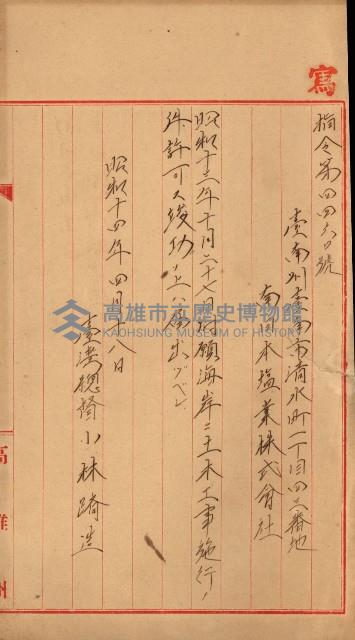 寫
指令第四四六〇號
臺南州臺南市清水町一丁目四三番地
南日本塩業株式會社
昭和十三年十月二十七日願海岸ニ土木工事施行ノ
件許可ス竣功ノ上ハ届出ヅベシ
昭和十四年四月 八日
臺灣總督小林躋造
高雄州
高雄市立歷史博物館
KAOHSIUNG MUSEUM OF HISTORY